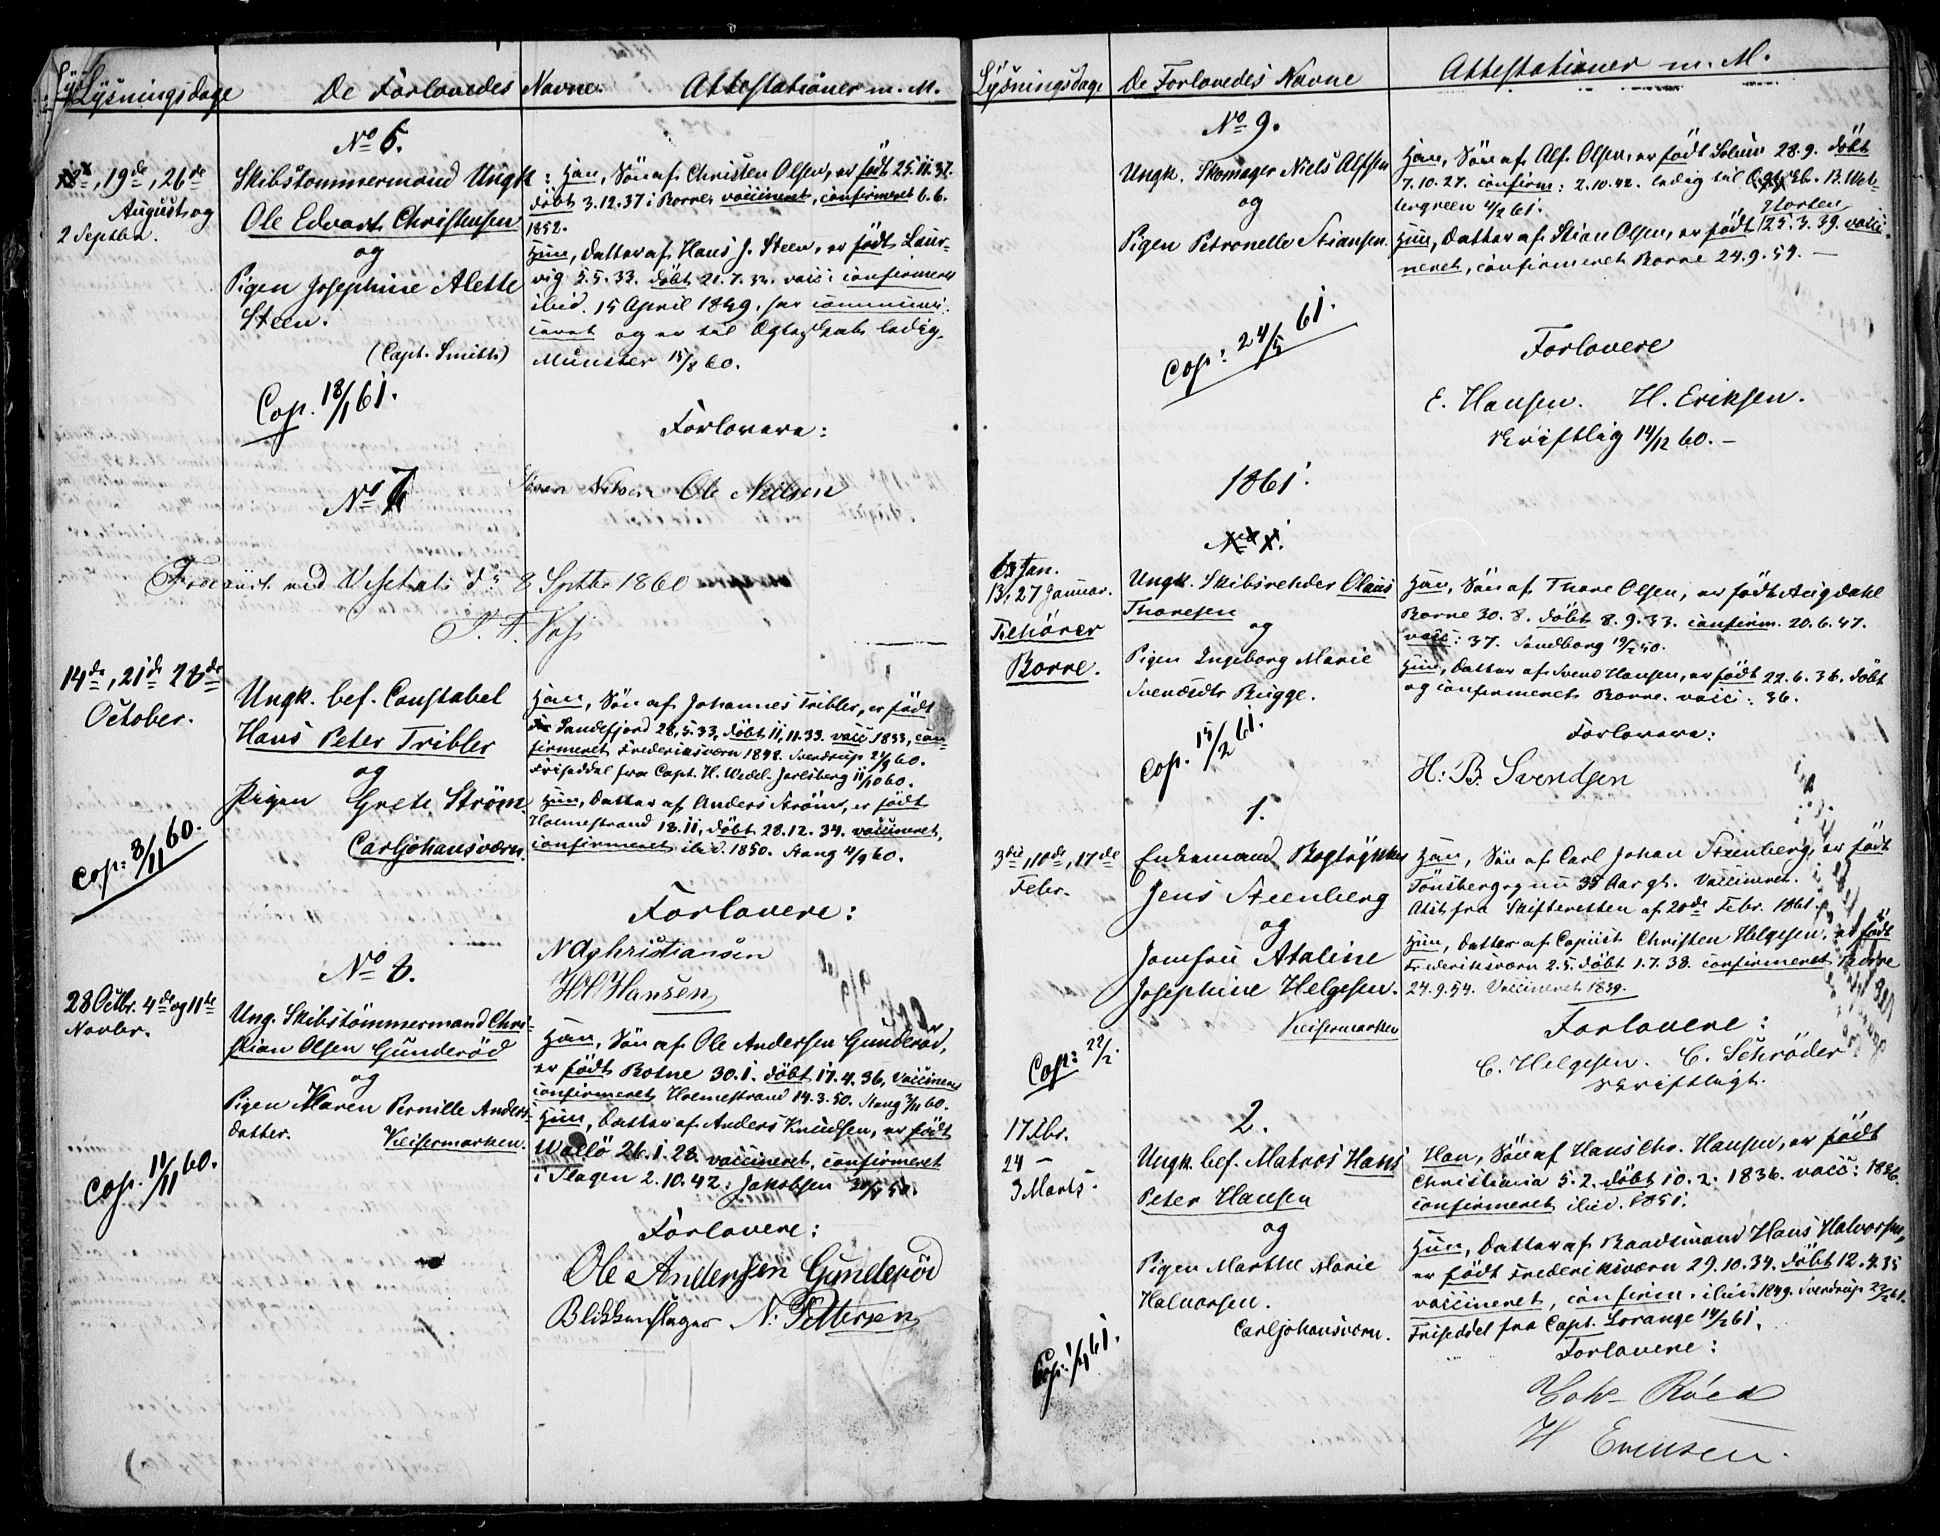 Lysningsdage
De Forlovedes Navne
Attestationer m. M.
No 6.
19de, 26de
August og
2 Septbr.
Skibstømmermand Ungk:
Ole Edvart Christensen
og
Pigen Josephine Alette
Steen.
(Capt. Smith)
Cop. 18/1 61.
Han, Søn af Christen Olsen, er født 25.11.37.
døbt 3.12.37 i Borre, vaccineret, confirmeret 6.6.
1852.
Hun, Datter af Hans J. Steen, er født Laur-
vig 5.5.33. døbt 21.7.33. vacc: confirmeret
ibid. 15 April 1849. har communi-
ceret og er til Ægteskab ledig.
Münster 15/8 60.
Forlovere:
Søren Nilsen Ole Neilsen
No 7
Fremviist ved Visitats d. 8 Septbr 1860
14de, 21de 28de
October.
Ungk. bef. Constabel
Hans Peter Tribler
og
Pigen Grete Strøm
Carljohansværn.
Cop: 8/11 60.
Han, Søn af Johannes Tribler, er født
Sandefjord 28.5.33. døbt 11.11.33. vacc 1833, con-
firmeret Frederiksværn 1848. Sverdrup 21/9 60.
Friseddel fra Capt. H. Wedel-Jarlsberg 11/10 60.
Hun, Datter af Anders Strøm, er født
Holmestrand 18.11, døbt 28.12.34. vaccineret,
confirmeret ibid. 1850. Stang 4/9 60.
Forlovere:
N A Christiansen
H H Hansen
No 8.
28 Octbr. 4de og 11te
Novbr.
Ung. Skibstömmermand Chri-
stian Olsen Gunderöd
og
Pigen Maren Pernille Anders-
datter. Keisermarken.
Cop. 11/11 60.
Han, Søn af Ole Andersen Gunderöd,
er født Botne 30.1. døbt 17.4.36, vaccineret
confirmeret Holmestrand 14.3.50. Stang 3/11 60.
Hun, Datter af Anders Knudsen, er født
Wallö 26.1.28. vaccineret, confirmeret
i Slagen 2.10.42. Jakobsen
Forlovere:
Ole Andersen Gunderöd
Blikkenslager N. Pettersen
Lysningsdage
De Forlovedes Navne
Attestationer m. M.
No 9.
Ungk. Skomager Niels Alfsen
og
Pigen Petronelle Stiansen.
Cop: 24/5 61.
Han, Søn af Alf Olsen, er født Solum 28.9. døbt
7.10.27. confirm: 2.10.42. ledig til Ægtesk. B. Wet-
tergreen 4/2 61.
Horten
Hun, Datter af Stian Olsen, er født 25.3.39. vacci-
neret, confirmeret Borre 24.9.54.
Forlovere
E. Hansen. H. Eriksen.
skriftlig 14/12 60.
1861.
No 1.
6 Jan.
13, 27 Januar.
Tilhører
Borre.
Ungk. Skibsreder Olaus
Thoresen
og
Pigen Ingeborg Marie
Svendsdtr Bugge.
Cop. 15/2 61.
Han, Søn af Thore Olsen, er født Augdahl
Borre 30.8. døbt 8.9.33. confirm. 20.6.47.
vacc: 37. Sandberg
Hun, Datter af Svend Hansen, er født 22.6.36. døbt
og confirmeret Borre. vacc: 36.
Forlovere:
H: B: Svendsen
1.
3die, 10de, 17de
Febr.
Enkemand Bogtrykker
Jens Steenberg
og
Jomfru Ataline
Josephine Helgesen.
Keisermarken
Cop: 22/2.
Han, Søn af Carl Johan Steenberg, er født
Tönsberg og nu 35 Aar gl. Vaccineret.
Att. fra Skifteretten af 20de Febr. 1861.
Hun, Datter af Copiist Christen Helgesen, er født
Frederiksværn 2.5. døbt 1.7.38. confirmeret Borre
24.9.54. Vaccineret 1839.
Forlovere:
C. Helgesen. C. Schröder
skriftligt.
2.
17 Fbr.
24 —
3 Marts.
Ungk. bef. Matros Hans
Peter Hansen
og
Pigen Marthe Marie
Halvorsen.
Carljohansværn.
Han, Søn af Hans Chr. Hansen, er født
Christiania 5.2. døbt 10.2.1836. vacc: 1836.
confirmeret ibid. 1851.
Hun, Datter af Baadsmand Hans Halvorsen,
er født Frederiksværn 29.10.34. døbt 12.4.35
vaccineret, confirm. ibid. 1849. Sverdrup 23/2 61.
Friseddel fra Capt. Lorange 14/2 61.
Forlovere:
H Eriksen.